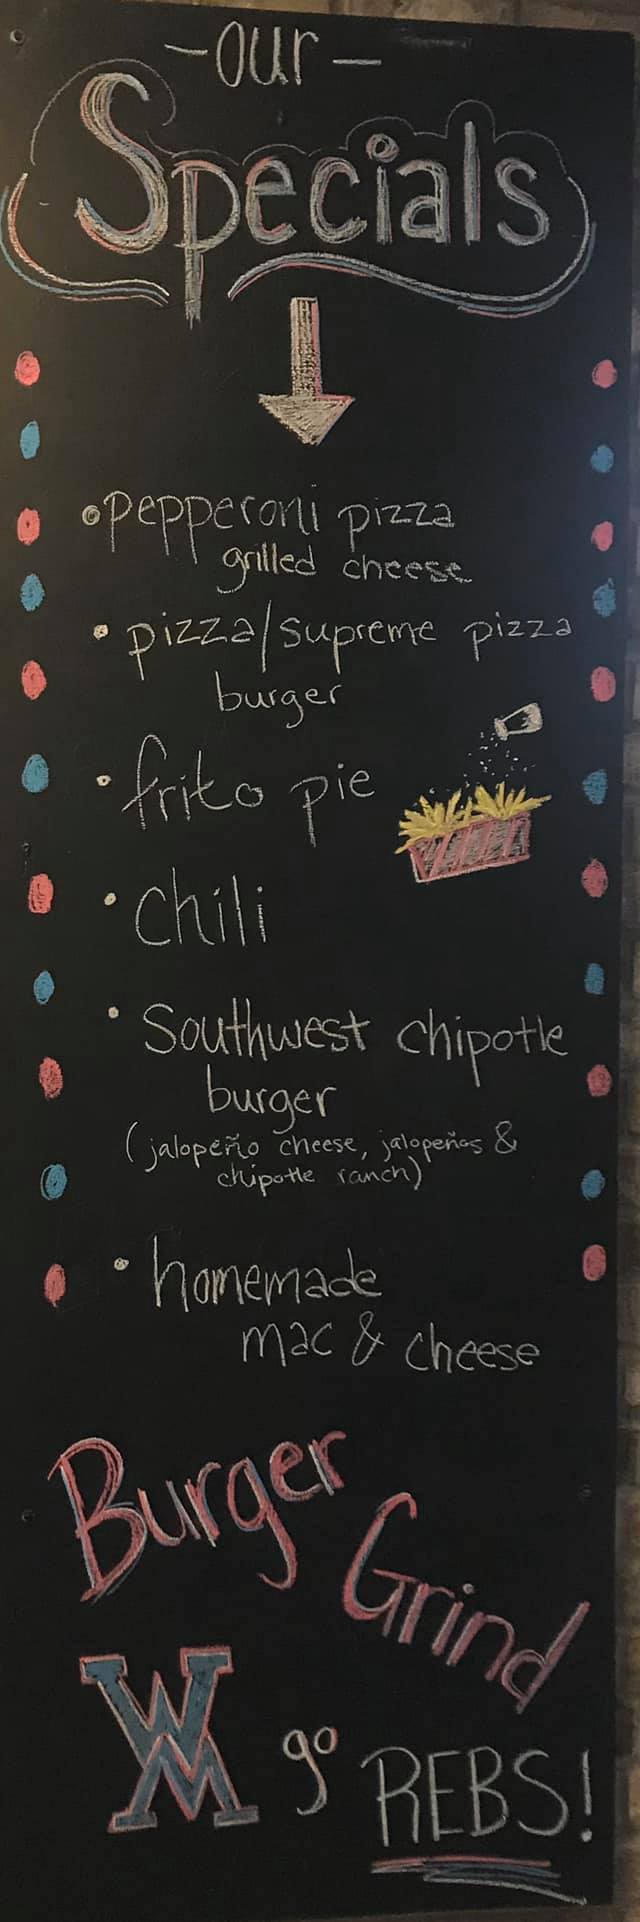 - our -
Specials
• pepperoni pizza
grilled cheese
• pizza/supreme pizza
burger
• frito pie
• chili
• Southwest chipotle
burger
(jalopeño cheese, jalopeños &
chipotle ranch)
• homemade
mac & cheese
Burger
Grind
WM go REBS!